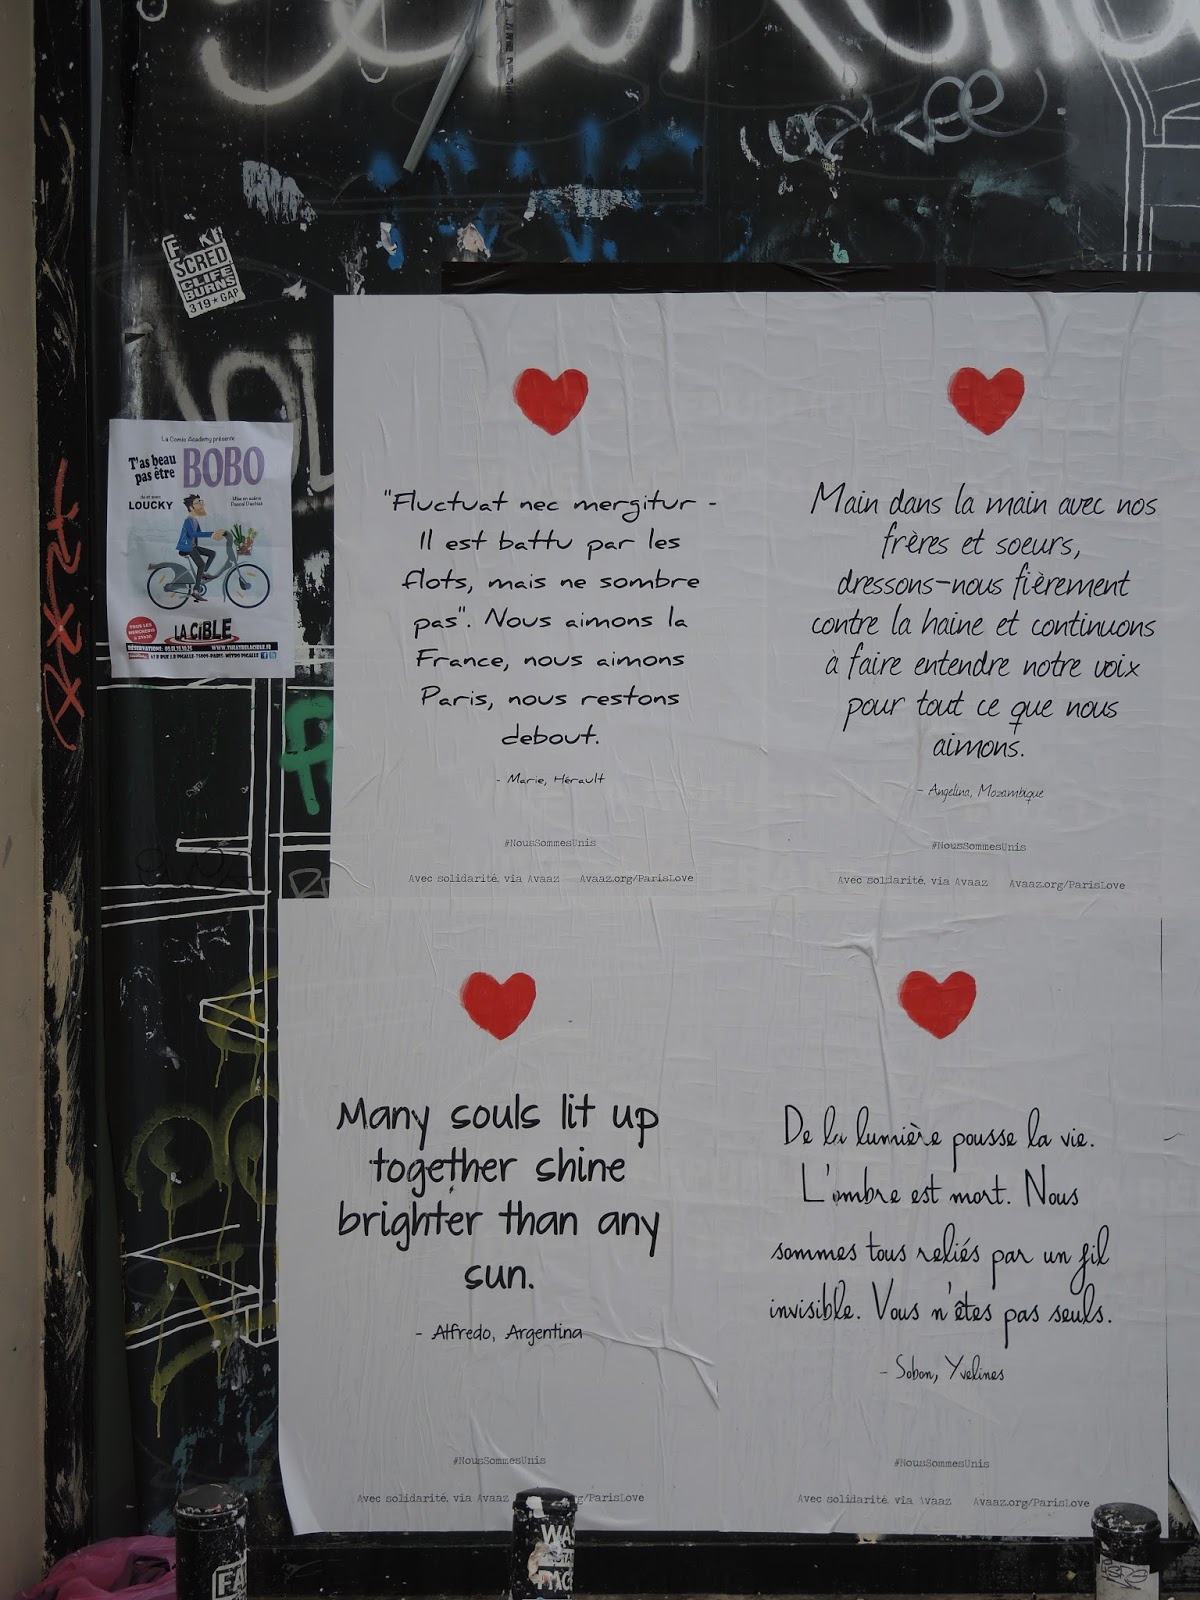 SCRED
CLIFF
BURNS
319★GAP
La Comic Academy présente
T'as beau
pas être
BOBO
de et avec
LOUCKY
Mise en scène
TOUS LES
MERCREDIS
LA CIBLE
"Fluctuat nec mergitur -
Il est battu par les
flots, mais ne sombre
pas". Nous aimons la
France, nous aimons
Paris, nous restons
debout.
- Marie, Hérault
#NousSommesUnis
Avec solidarité, via Avaaz Avaaz.org/ParisLove
Main dans la main avec nos
frères et soeurs,
dressons-nous fièrement
contre la haine et continuons
à faire entendre notre voix
pour tout ce que nous
aimons.
- Angelina, Mozambique
#NousSommesUnis
Avec solidarité, via Avaaz Avaaz.org/ParisLove
Many souls lit up
together shine
brighter than any
sun.
- Alfredo, Argentina
#NousSommesUnis
Avec solidarité, via Avaaz g/ParisLove
De la lumière pousse la vie.
L'ombre est mort. Nous
sommes tous reliés par un fil
invisible. Vous n'êtes pas seuls.
- Sobon, Yvelines
#NousSommesUnis
Avec solidarité, via Avaaz Avaaz.org/ParisLove